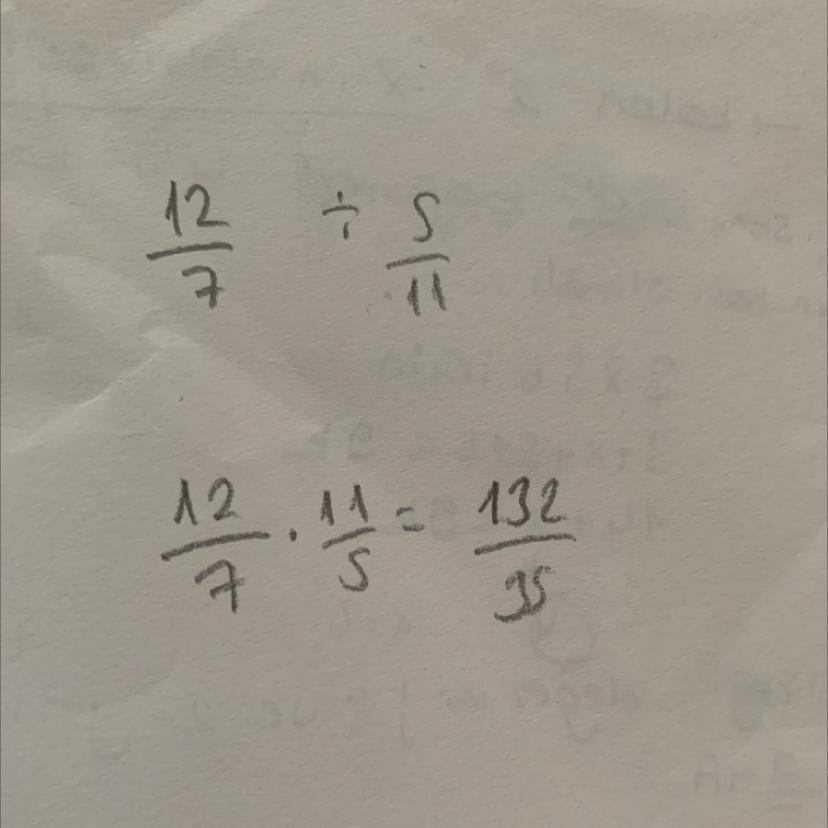 12/7 ÷ 5/11
12/7 · 11/5 = 132/35